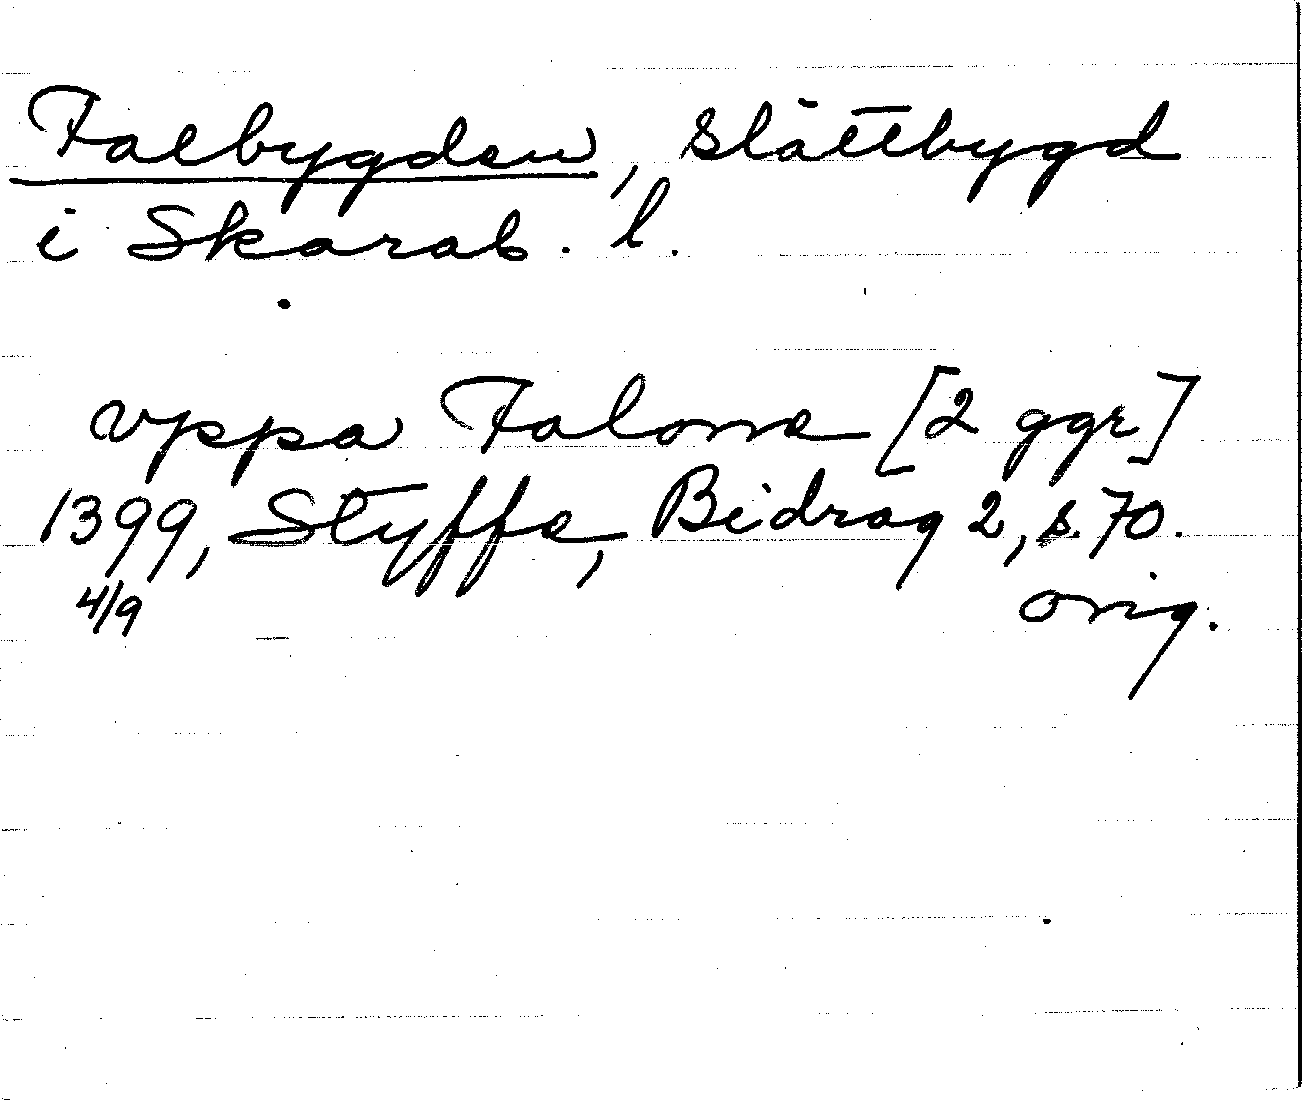 Falbygden, slättbygd
i Skarab. l.
vppa Falone [2 ggr]
1399, Styffe, Bidrag 2, s. 70.
4/9 orig.